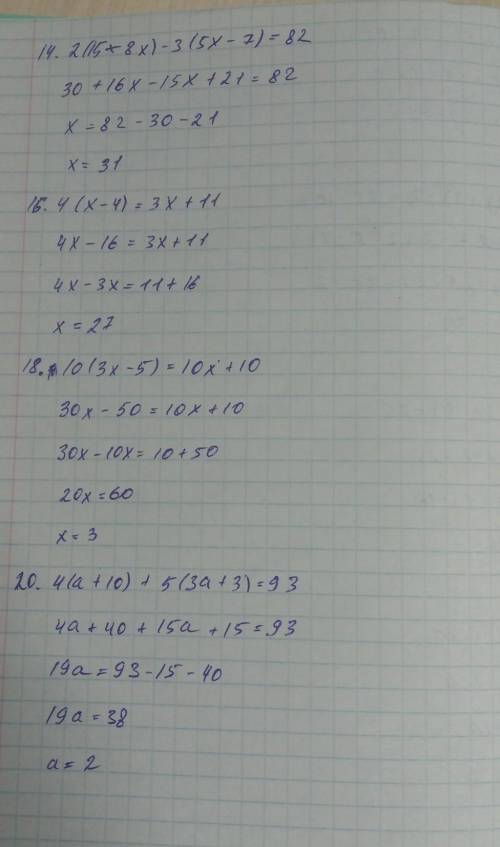 14. 2(15+8x)-3(5x-7)=82
30+16x-15x+21=82
x=82-30-21
x=31
16. 4(x-4)=3x+11
4x-16=3x+11
4x-3x=11+16
x=27
18. 10(3x-5)=10x+10
30x-50=10x+10
30x-10x=10+50
20x=60
x=3
20. 4(a+10)+5(3a+3)=93
4a+40+15a+15=93
19a=93-15-40
19a=38
a=2